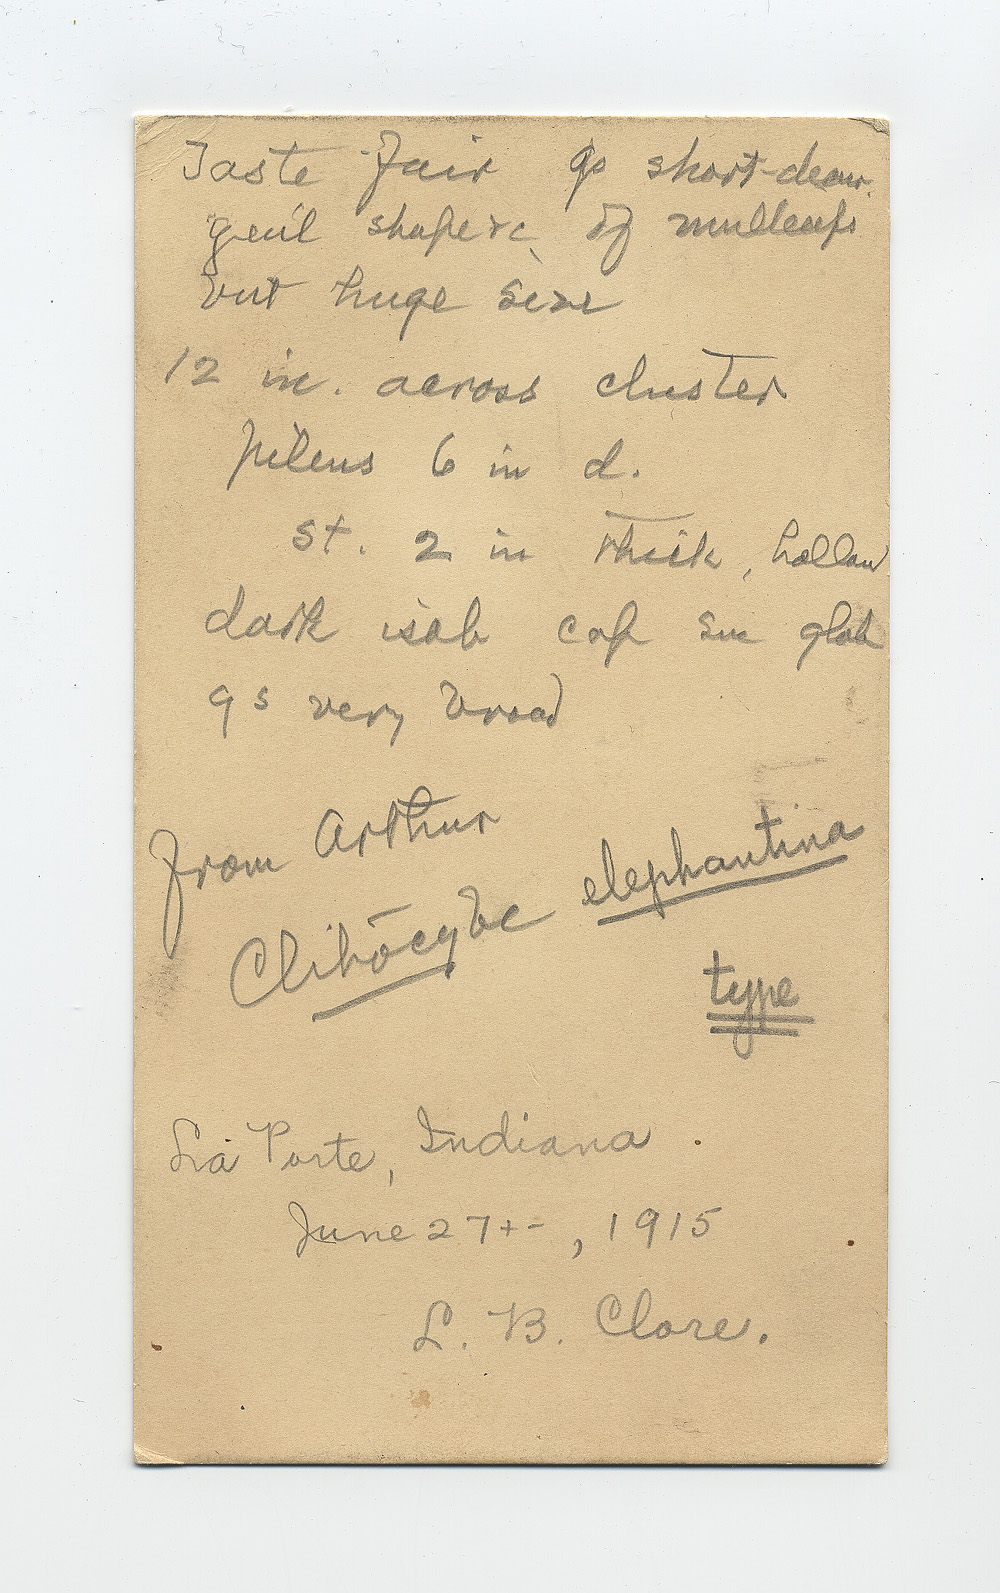 Taste fair gs short-decur.
genl shape &c of multiceps
but huge size
12 in. across cluster
pileus 6 in d.
st. 2 in thick, hollow
dark isab cap sur glab
gs very broad
From Arthur
Clitocybe elephantina
type
La Porte, Indiana.
June 27+-, 1915
L. B. Clore.